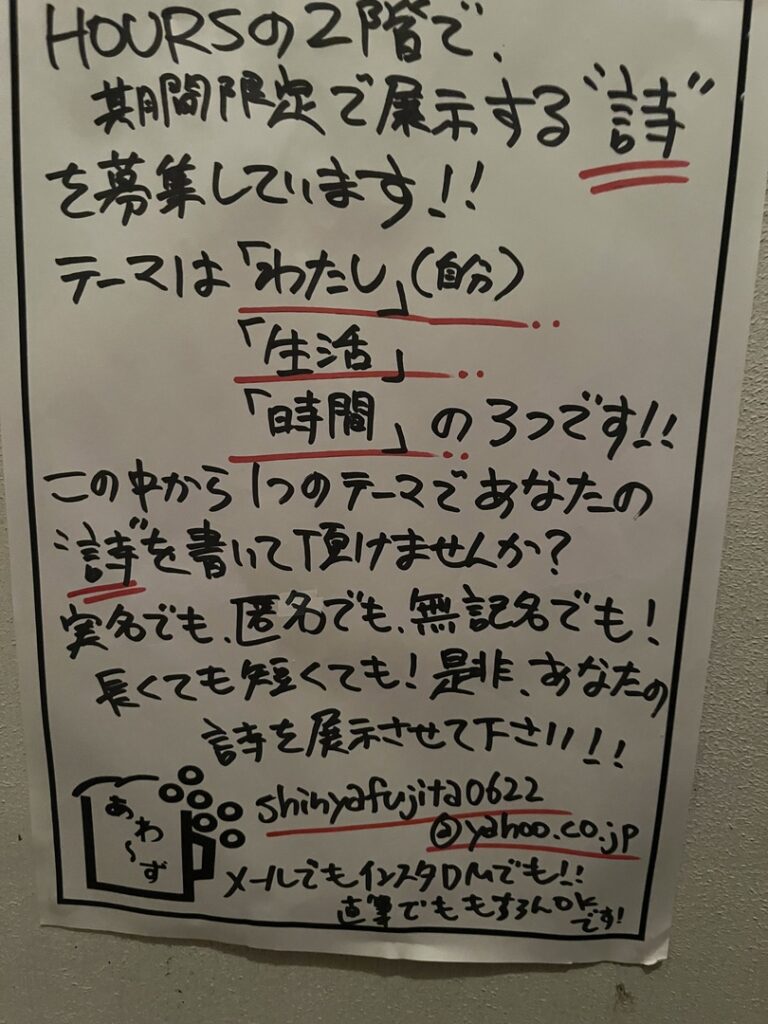 HOURSの2階で、
期間限定で展示する"詩"
を募集しています!!
テーマは「わたし」(自分)
「生活」
「時間」の3つです!!
この中から1つのテーマであなたの
"詩"を書いて頂けませんか?
実名でも、匿名でも、無記名でも!
長くても短くても!是非、あなたの
詩を展示させて下さい!!
あわ〜ず
shinyafujita0622
@yahoo.co.jp
メールでもインスタDMでも!!
直筆でももちろんOK
です!